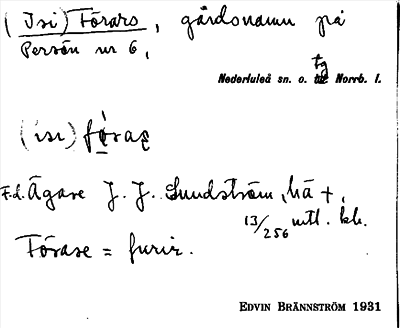 (Isi) Förars, gårdsnamn på
Persön nr 6,
Nederluleå sn. o. tg Norrb. l.
(isi) föras
F.d. Ägare J. J. Sundström, hä +,
13/256 mtl. kr.
Förare = furir.
EDVIN BRÄNNSTRÖM 1931